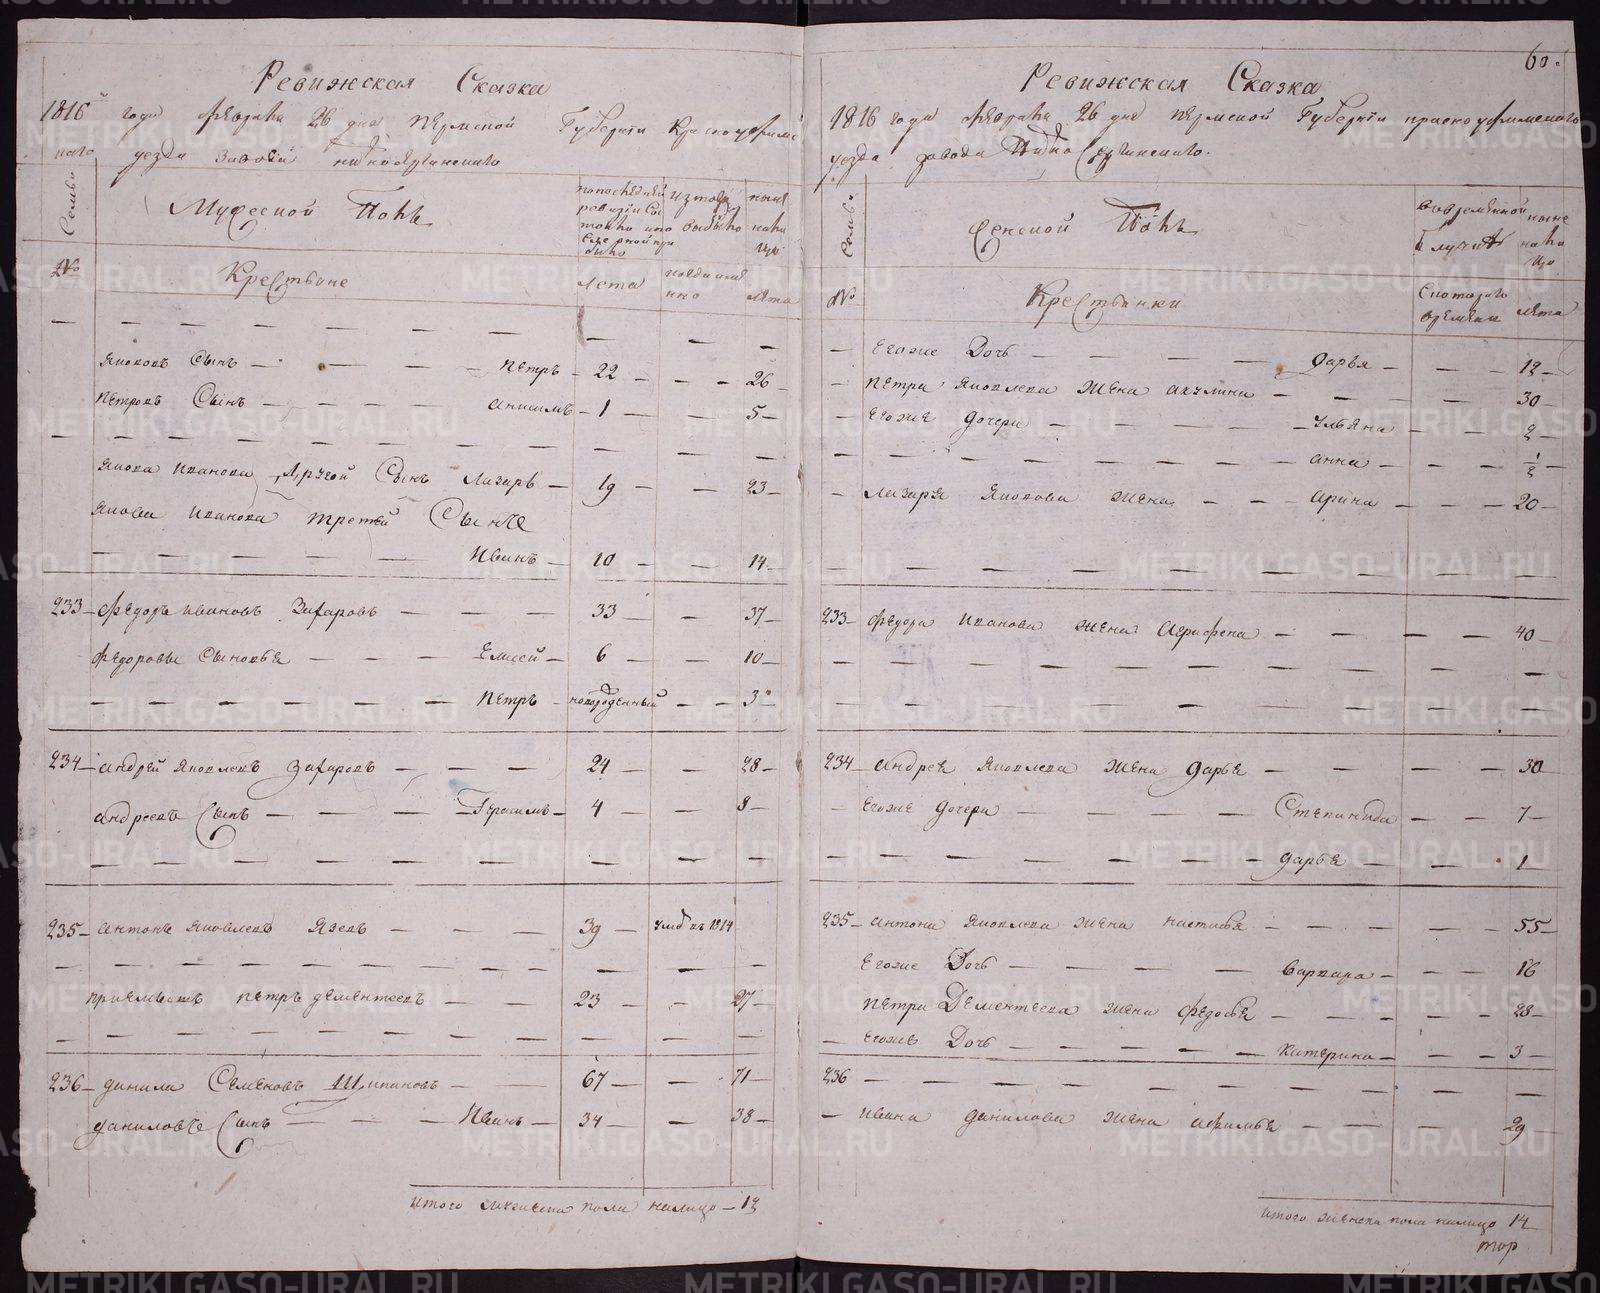 Ревижская Сказка
1816 года февраля 26 дня пермской Губернии Красноуфимс
каго уезда завода нижносергинскаго
Семьи
Мужеской Полъ
попоследней ревизии состояло ипо
изтого выбыло
ныне налицо
№
Крестьяне
Лета
Лета
Яковъ Сынъ — Петръ — 22 — 26
Петровъ Сынъ — Анисимъ — 1 — 5
Якова Иванова Другой Сынъ Лазарь — 19 — 23
Якова Иванова третей Сынъ
Иванъ — 10 — 14
233 Федоръ Ивановъ Захаровъ — 33 — 37
Федоровы Сыновья — Елисей — 6 — 10
Петръ — новорожденный — 3
234 Андрей Яковлевъ Захаровъ — 24 — 28
Андреевъ Сынъ — Герасимъ — 4 — 8
235 Антонъ Яковлевъ Язевъ — 39 — 1814
приемышъ петръ дементьевъ — 23 — 27
236 данила Семеновъ Шипановъ — 67 — 71
даниловъ Сынъ — Иванъ — 34 — 38
Итого мужеска пола налицо — 12
60.
Ревижская Сказка
1816 года февраля 26 дня пермской Губернии красноуфимскаго
уезда завода Нижно Сергинскаго.
Семьи
Женской Полъ
вовременной отлучке
ныне налицо
№
Крестьянки
Скотораго времени
Лета
Егоже Дочь — дарья — 12
Петра Яковлева Жена акулина — 30
Егоже дочери — ульяна — 2
анна — 1/2
Лазаря Яковлева жена — арина — 20
233 Федора Иванова жена Аграфена — 40
234 андрея Яковлева жена дарья — 30
Егоже дочери — Степанида — 7
дарья — 1
235 антона Яковлева жена настасья — 55
Егоже Дочь — варвара — 16
Петра Дементьева жена федосья — 28
Егоже Дочь — катерина — 3
236
Ивана данилова жена афимья — 29
Итого женска пола налицо 14
METRIKI.GASO-URAL.RU